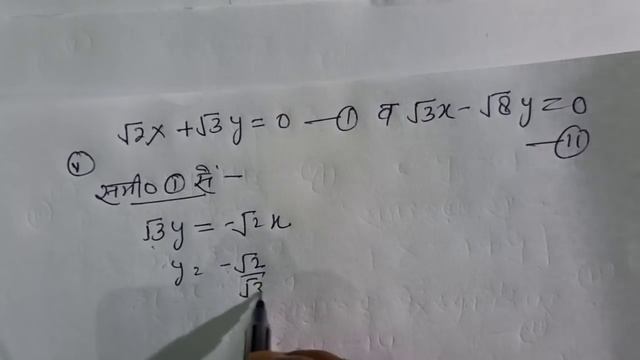 √2x + √3y = 0 —① व √3x - √8y = 0
—⑪
ⓥ
समी० ① से —
√3y = -√2x
y = -√2/√3